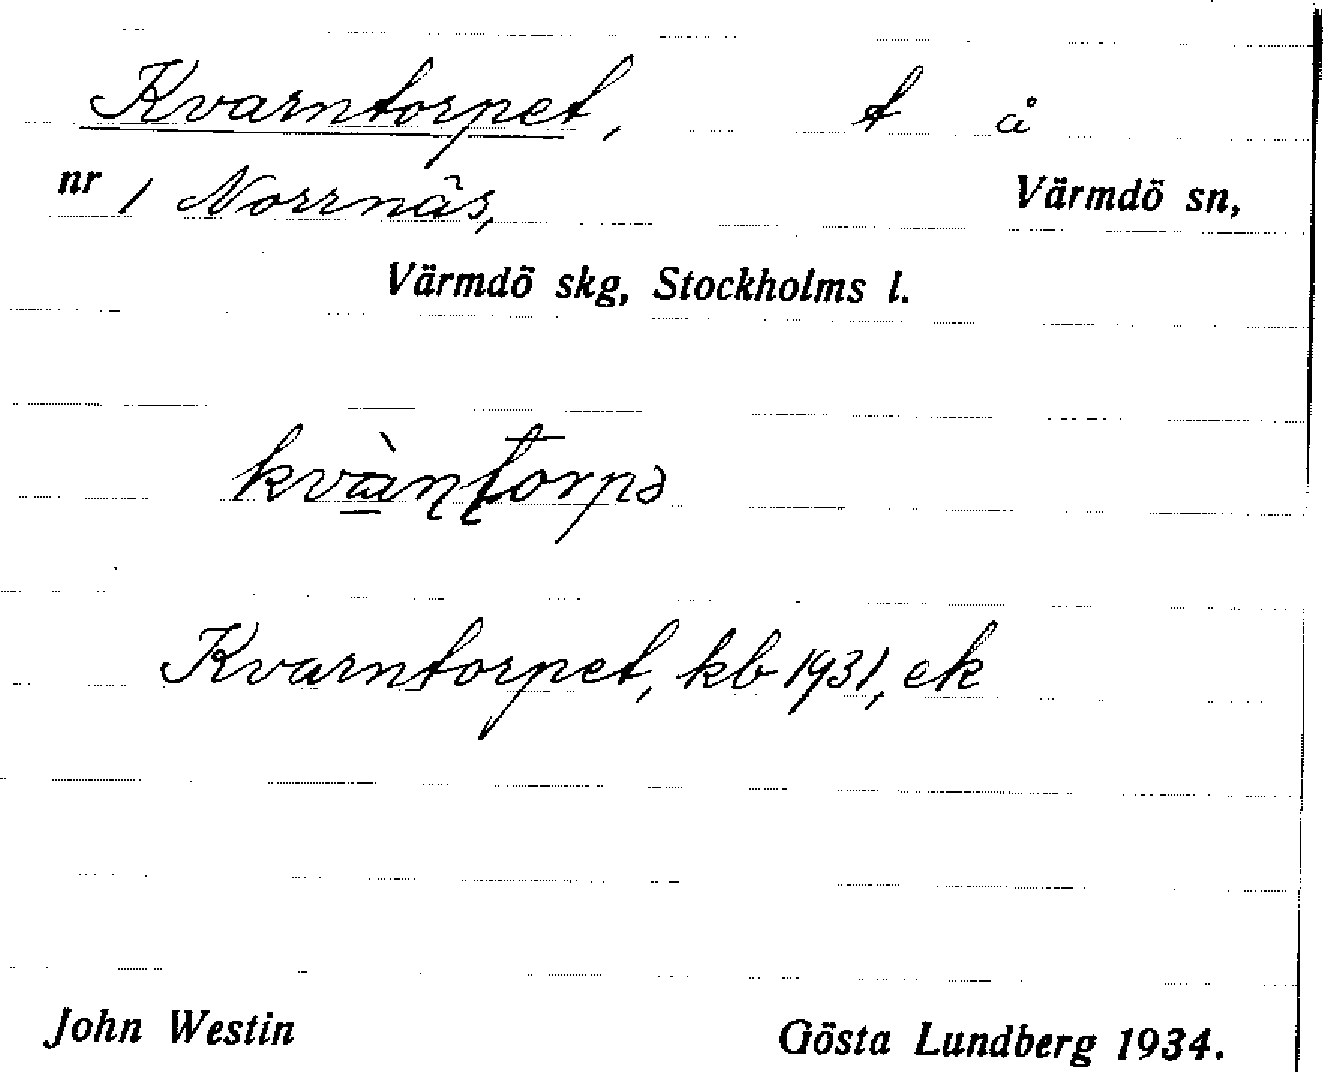 Kvarntorpet, t å
nr 1 Norrnäs, Värmdö sn,
Värmdö skg, Stockholms l.
kvàṇṭorpə
Kvarntorpet, kb 1931, ek
John Westin Gösta Lundberg 1934.